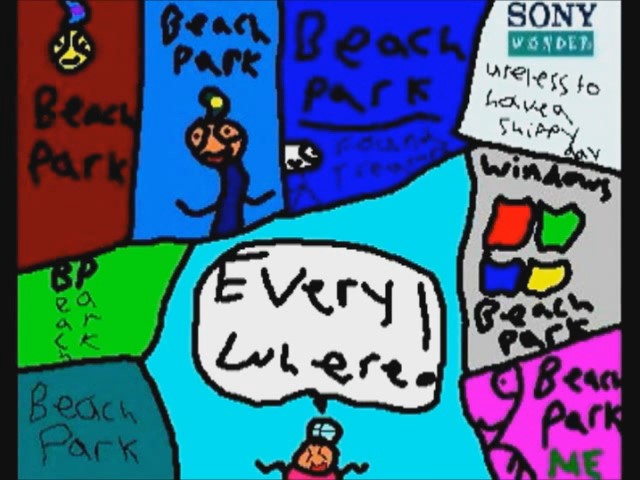 Beach
Park
Beach
Park
Beach
Park
Found
SONY
WONDER
ureless to
have a
shippy
day
Windows
Beach
Park
BP
ea
ar
ck
h
Every
where!
Beach
Park
Beach
Park
ME